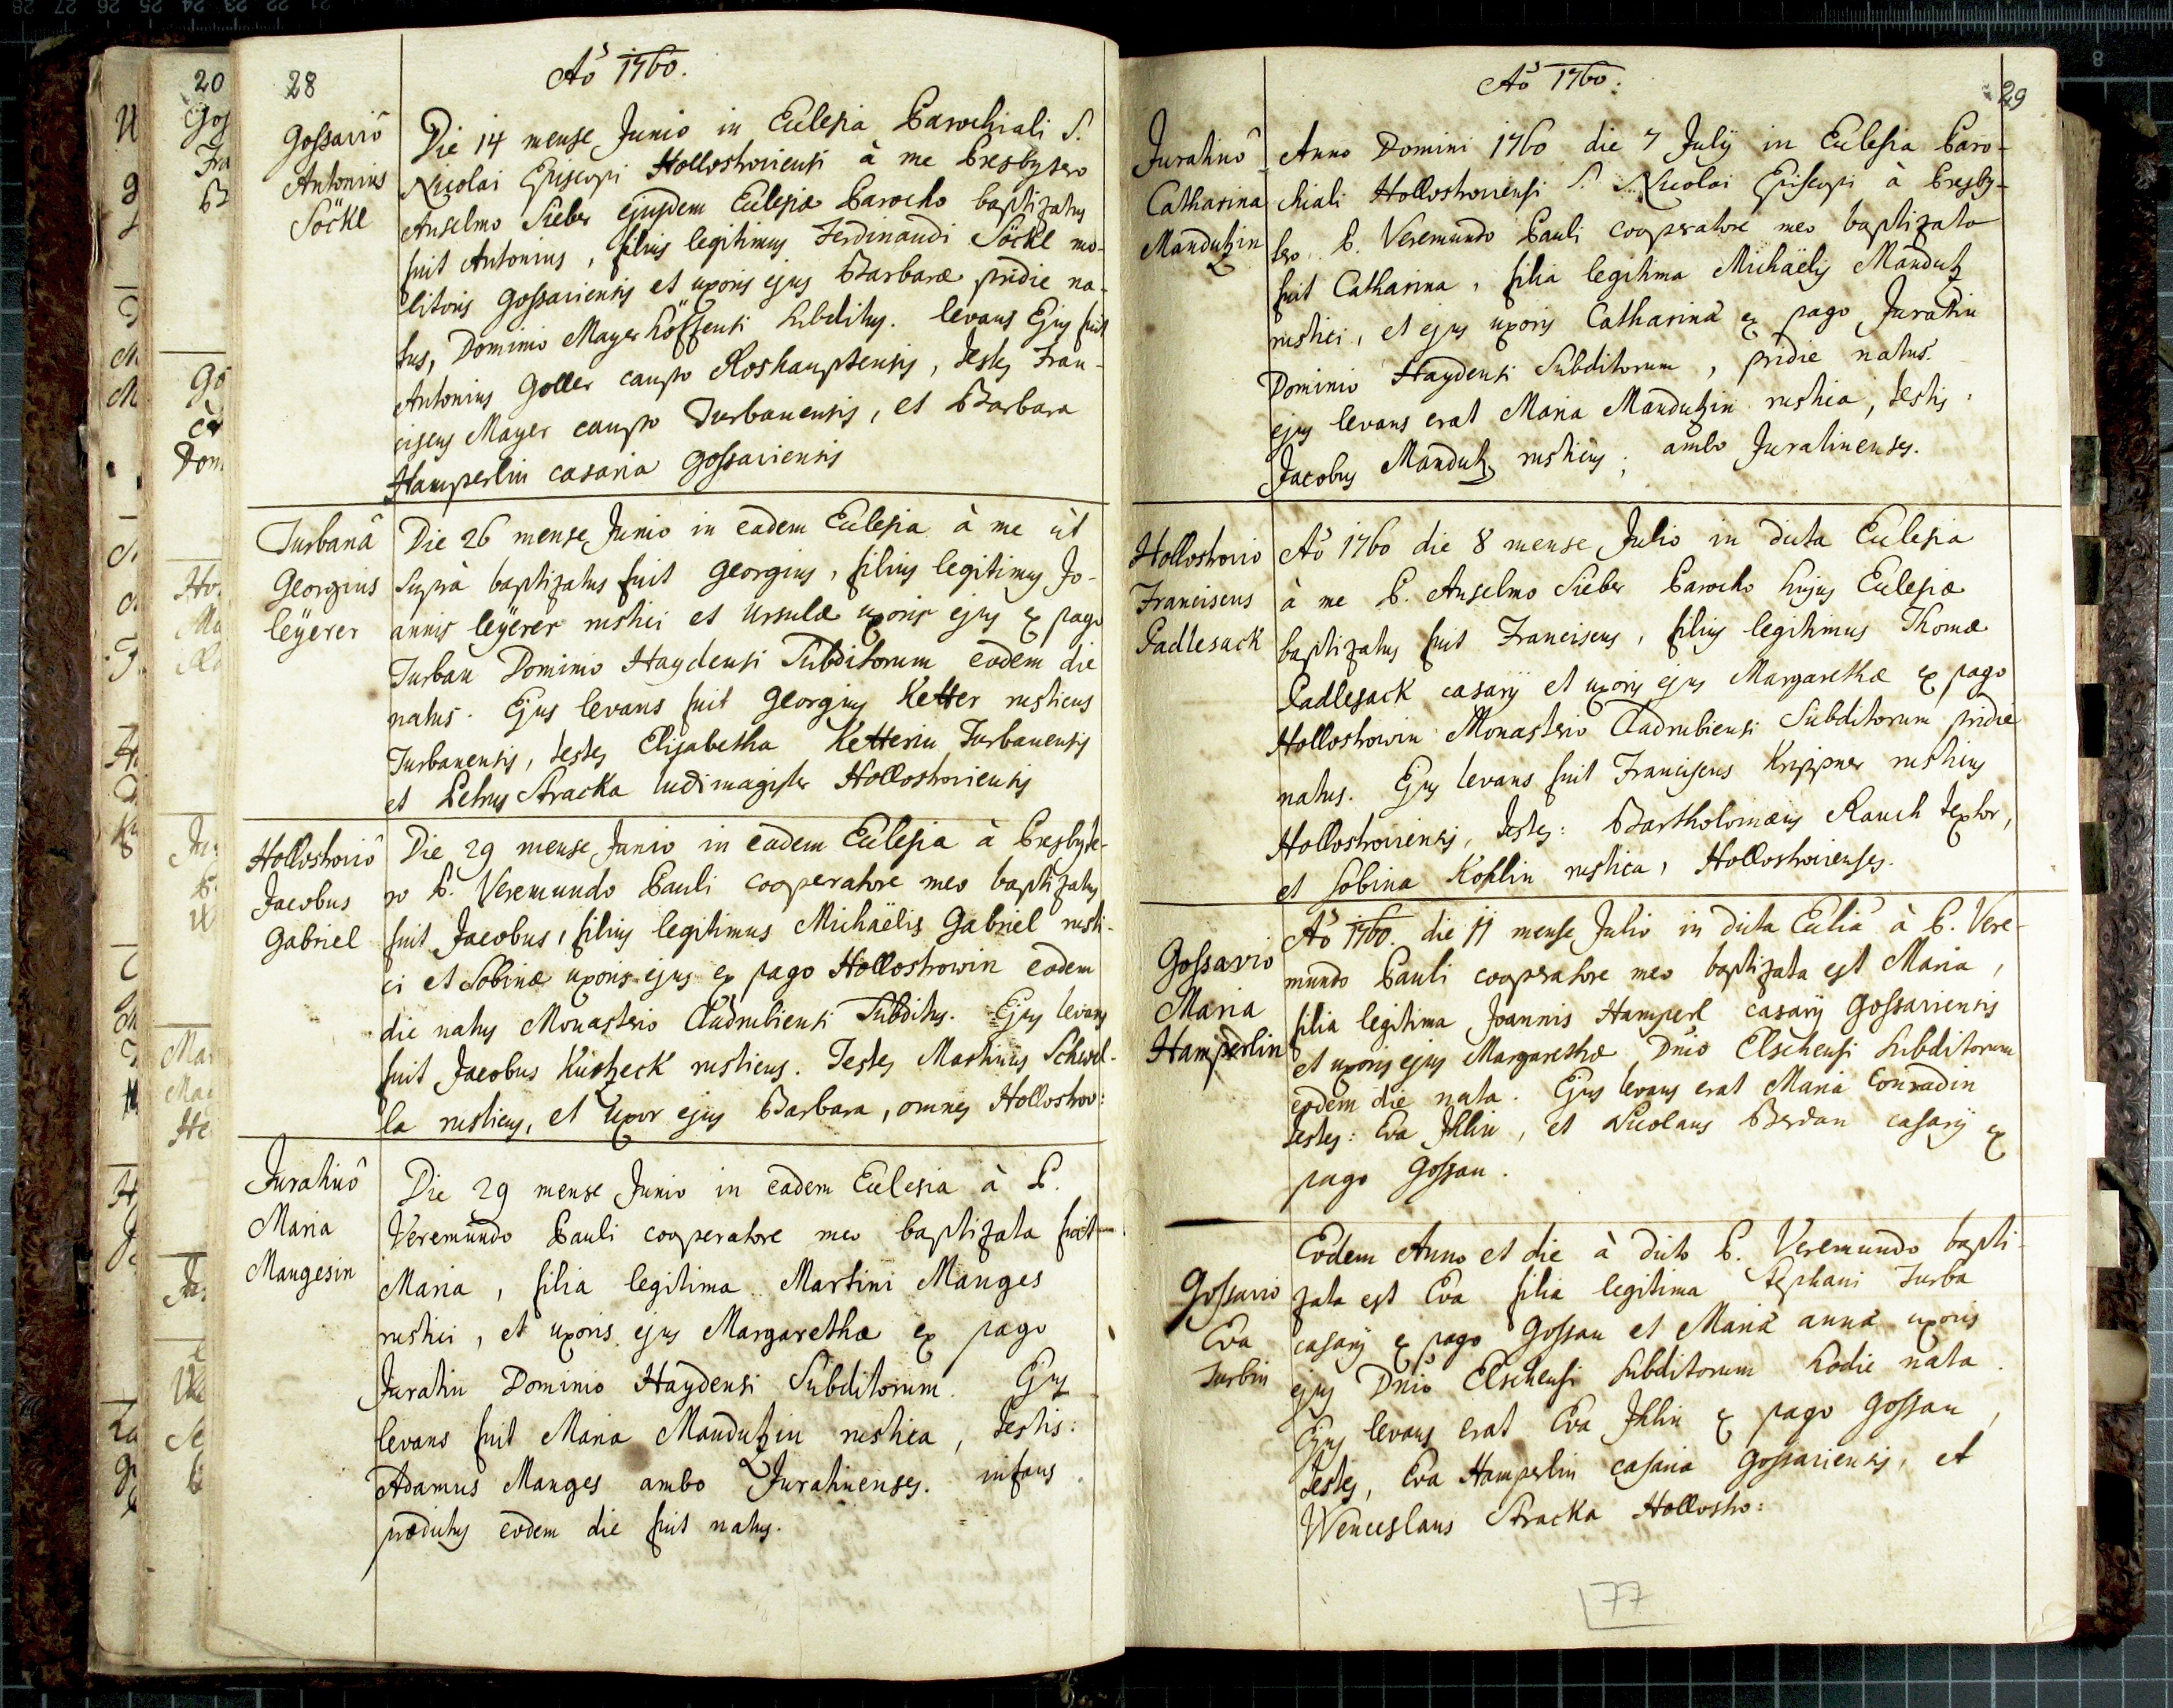 28
Aō 1760.
Gossaviô
Antonius
Söckl
Die 14 mense Junio in Eclesia Parochiali S.
Nicolai Episcopi Hollostroviensi à me Presbytero
Anselmo Sieber ejusdem Eclesiæ Parocho baptizatus
fuit Antonius, filius legitimus Ferdinandi Söckl mo-
litoris Gossaviensis et uxoris ejus Barbaræ pridie na-
tus, Dominio Mayerhöffensi subditus. levans Ejus fuit
Antonius Goller caupo Roshauptensis, testes Fran-
ciscus Mayer caupo Turbanensis, et Barbara
Hamperlin casaria Gossaviensis
Turbanâ
Georgius
leÿerer
Die 26 mense Junio in eadem Eclesia à me ùt
suprà baptizatus fuit Georgius, filius legitimus Jo-
annis leÿerer rustici et Ursulæ uxoris ejus ex pago
Turban Dominio Haydensi Subditorum eodem die
natus. Ejus levans fuit Georgius Ketter rusticus
Turbanensis, testes Elisabetha Ketterin Turbanensis
et Petrus Stracka ludimagister Hollostroviensis
Hollostroviô
Jacobus
Gabriel
Die 29 mense Junio in eadem Eclesia à Presbyte-
ro P. Veremundo Pauli cooperatore meo baptizatus
fuit Jacobus, filius legitimus Michaëlis Gabriel rusti-
ci et Sobinæ uxoris ejus ex pago Hollostrowin eodem
die natus Monasterio Cladrubiensi Subditus. Ejus levans
fuit Jacobus Kutzeck rusticus. Testes Martinus Schwel-
la rusticus, et Uxor ejus Barbara, omnes Hollostrov:
Juratinô
Maria
Mangesin
Die 29 mense Junio in eadem Eclesia à P.
Veremundo Pauli cooperatore meo baptizata fuit
Maria, filia legitima Martini Manges
rustici, et uxoris ejus Margarethæ ex pago
Juratin Dominio Haydensi Subditorum. Ejus
levans fuit Maria Mandutzin rustica, testis:
Adamus Manges ambo Juratinenses. infans
prædictus eodem die fuit natus.
Aō 1760.
29
Juratinô
Catharina
Mandutzin
Anno Domini 1760 die 7 Julÿ in Eclesia Paro-
chiali Hollostroviensi S. Nicolai Episcopi à Presby-
tero P. Veremundo Pauli cooperatore meo baptizata
fuit Catharina, filia legitima Michaëlis Mandutz
rustici, et ejus uxoris Catharinâ ex pago Juratin
Dominio Haydensi Subditorum, pridie natus.
ejus levans erat Maria Mandutzin rustica, testis:
Jacobus Mandutz rusticus; ambo Juratinenses.
Hollostrovio
Franciscus
Padlesack
Aō 1760 die 8 mense Julio in dicta Eclesia
à me P. Anselmo Sieber Parocho hujus Eclesiæ
baptizatus fuit Franciscus, filius legitimus Thomæ
Padlesack casarÿ et uxoris ejus Margarethæ ex pago
Hollostrowin Monasterio Cladrubiensi Subditorum pridie
natus. Ejus levans fuit Franciscus Krippner rusticus
Hollostroviensis, testes: Bartholomæus Rauch textor,
et Sobina Kohlin rustica, Hollostrovienses.
Gossavio
Maria
Hamperlin
Aō 1760. die 11 mense Julio in dicta Eclia à P. Vere-
mundo Pauli cooperatore meo baptizata est Maria,
filia legitima Joannis Hamperl casarÿ Gossaviensis
et uxoris ejus Margarethæ, Dnio Elschensi subditorum
eodem die nata. Ejus levans erat Maria Conradin
testes: Eva Ihlin, et Nicolaus Berdan casarÿ ex
pago Gossau.
Gossavio
Eva
Turbin
Eodem Anno et die à dicto P. Veremundo bapti-
zata est Eva filia legitima Stephani Turba
casarÿ ex pago Gossau et Mariâ annâ uxoris
ejus Dnio Elschensi subditorum hodie nata.
Ejus levans erat Eva Ihlin ex pago Gossau,
testes, Eva Hamperlin casaria Gossaviensis, et
Wenceslaus Stracka Hollostro:
77